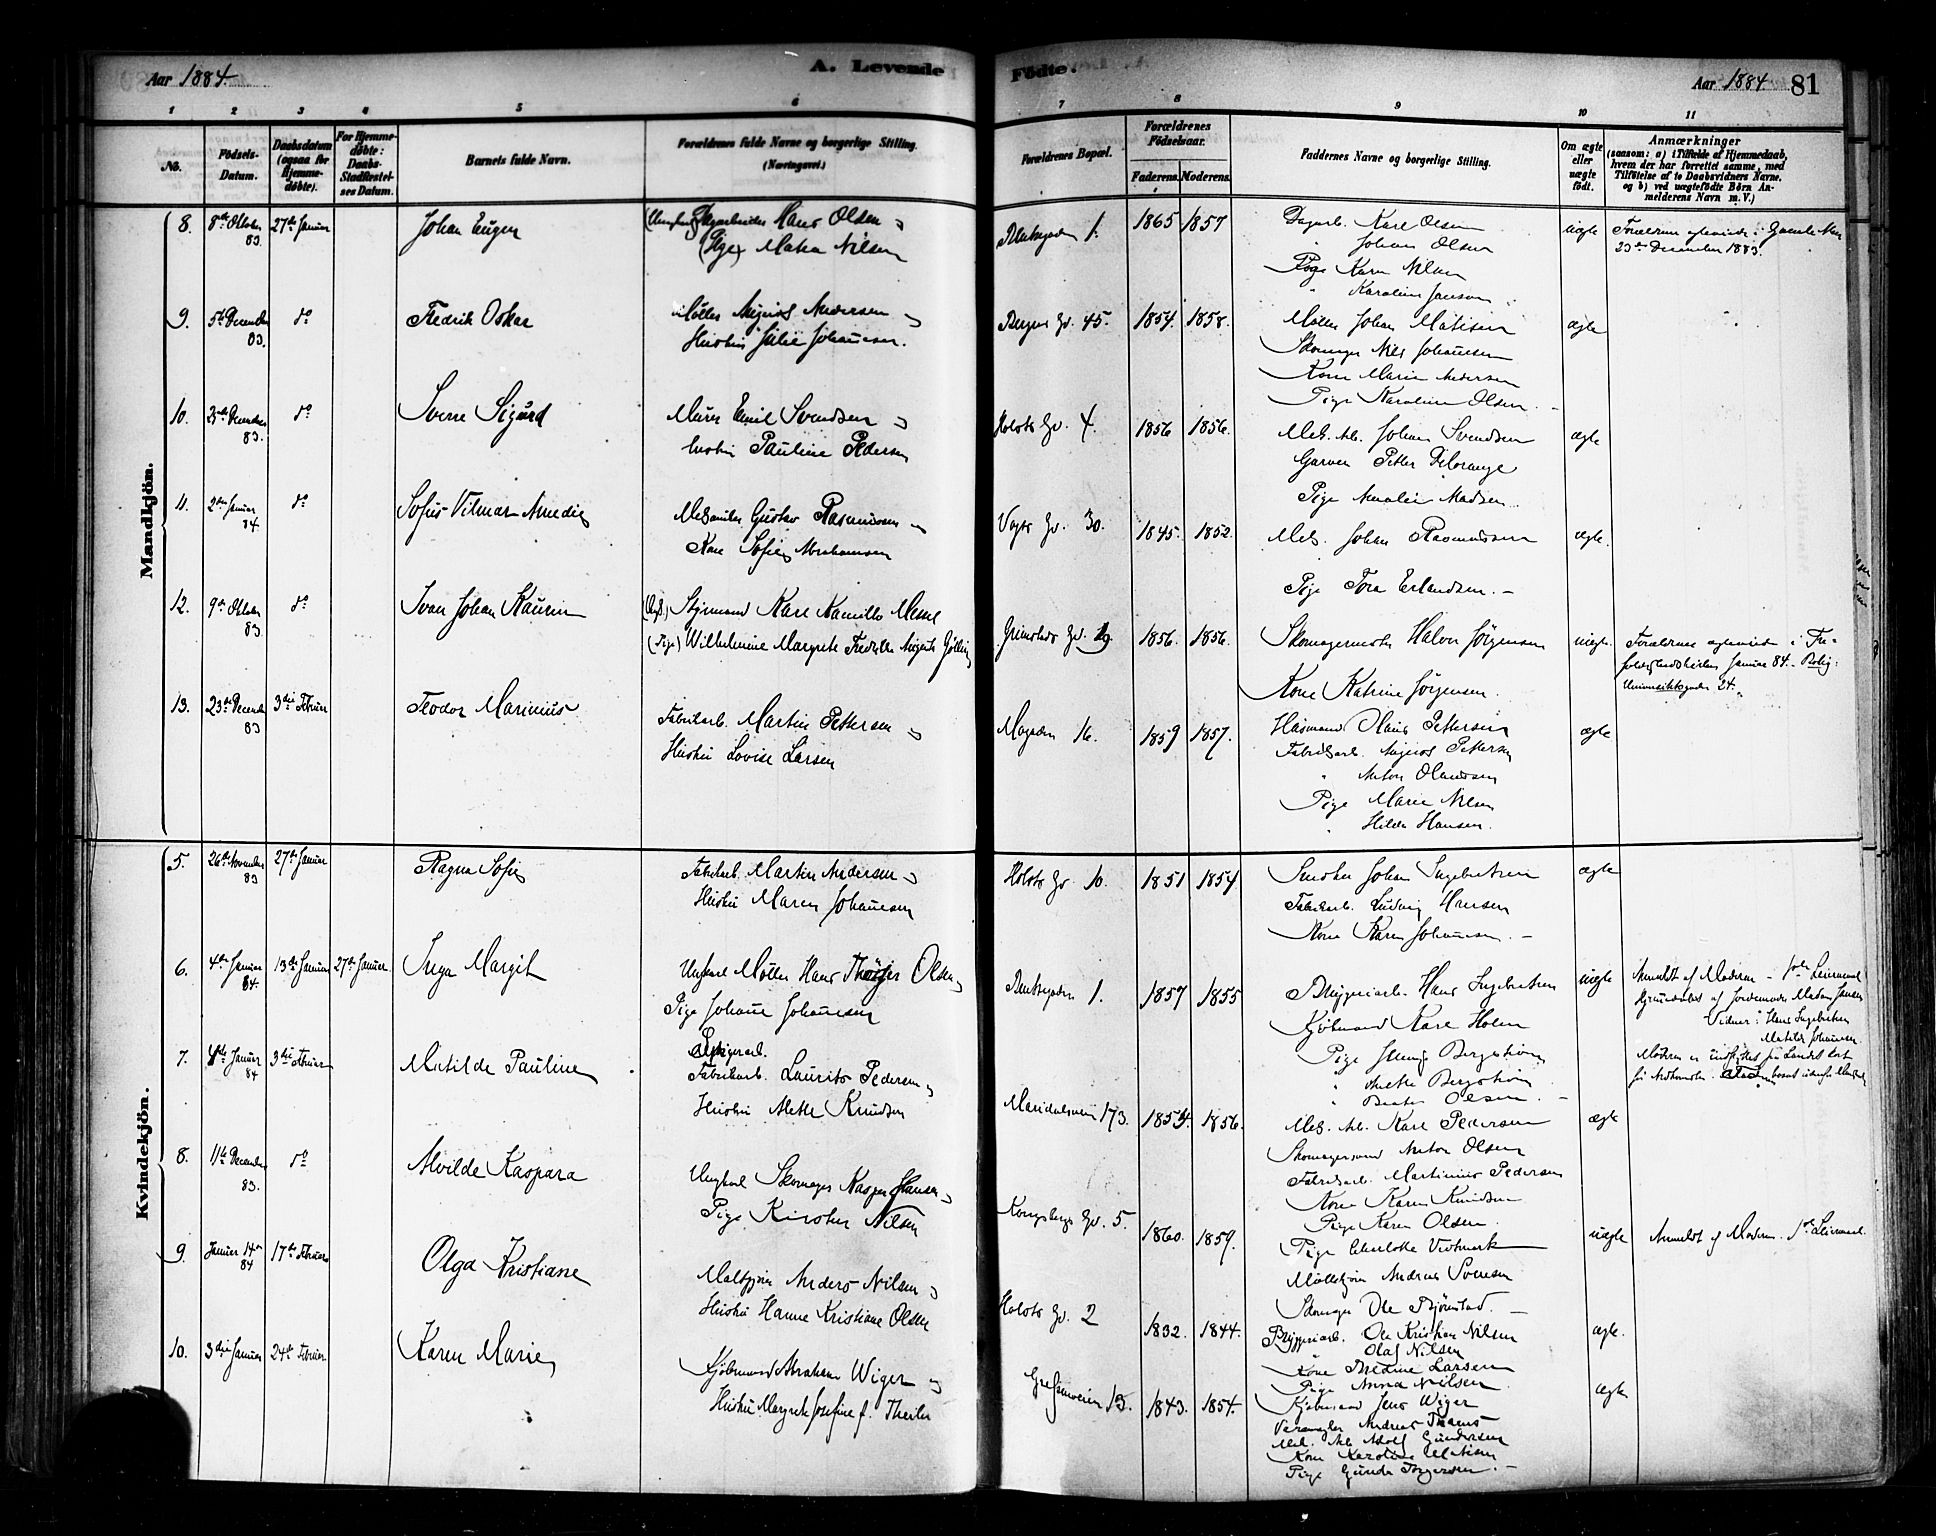 Aar 1884.
A. Levende Födte.
Aar 1884
81
1 2 3 4 5 6 7 8 9 10 11
No.
Födsels-Datum.
Daabsdatum (ogsaa for Hjemme-döbte).
For Hjemme-döbte: Daabs-Stadfæstel-ses Datum.
Barnets fulde Navn.
Forældrenes fulde Navne og borgerlige Stilling.
(Næringsvei.)
Forældrenes Bopæl.
Forældrenes Födselsaar.
Faderens. Moderens.
Faddernes Navne og borgerlige Stilling.
Om ægte eller uægte födt.
Anmærkninger
(saasom: a) i Tilfælde af Hjemmedaab,
hvem der har forrettet samme, med
Tilföielse af to Daabsvidners Navne,
og b) ved uægtefödte Börn An-
melderens Navn m. V.)
Mandkjön.
8. 8de Oktober 83. 27de Januar
Johan Eugen
(Ungkarl) Dagarbeider Hans Olsen
(Pige) Matea Nilsen
1. 1865 1857
Dagarb. Karl Olsen
" Johan Olsen
Pige Karen Nilsen
" Karoline Jansen
uægte
Forældrene ægteviede i Gamle Aker
23de December 1883.
9. 5te December 83. do
Fredrik Oskar
Møller August Andersen
Hustru Julie Johansen.
Bergens Gd. 45. 1854. 1858.
Møller Johan Matisen
Skomager Nils Johansen
Kone Marie Andersen
Pige Karoline Olsen.
ægte
10. December 83. do
Sverre Sigurd
Murer Emil Svendsen
Hustru Pauline Pedersen
Holsts Gd. 4. 1856 1856.
Mek. Arb. Johan Svendsen
Garver Petter
Pige Amalie Madsen
ægte
11. 2den Januar 84. do
Sofus Vilmar Amedie
Mek.arbeider Gustav Rasmussen
Kone Sofie Abrahamsen
Vogts Gd. 30. 1845. 1852.
Mek. Johan Rasmussen
Pige Tora Erlandsen. —
ægte.
12. 9de Oktober 83. do
Ivar Johan
(Ungk.) Styrmand Karl Kamillo
(Pige) Wilhelmine Margrete Fredrikke Augusta
Grimstads Gd. 1856. 1856.
Skomagermester Halvor Jørgensen
Kone Katrine Jørgensen.
uægte.
Forældrene ægteviede i Tre-
foldighedskirken Januar 84. Bolig:
Universitetsgaden 24.
13. 23de December 83 3die Februar
Teodor Marinius
Fabrikarb. Martin Pettersen
Hustru Lovise Larsen
16. 1859 1857.
Husmand Olaus Pettersen
Fabrikarb. August Pettersen
" Anton Olaussen
Pige Marie Nilsen
" Hilda Hansen.
ægte
Kvindekjön.
5. 26de November 83 27de Januar
Ragna Sofie
Fabrikarb. Martin Andersen
Hustru Maren Johansen
Holsts Gd. 10. 1851 1854.
Snedker Johan Ingebretsen
Fabrikarb. Ludvig Hansen
Kone Karen Johansen. —
ægte
6. 4de Januar 84. 13de Januar 27de Januar.
Inga Margit
Ungkarl Møller Hans Olsen
Pige Johanne Johannesen
1. 1857 1855
Bryggeriarb. Hans Ingebretsen
Kjøbmand Karl Holm
Pige Jenny Bergstrøm
" Anette Bergstrøm
" Olsen. —
uægte
Anmeldt af Moderen — 1ste Leiermaal
Hjemmedøbt af Jordemoder Madam Jansen
Vidner: Hans Ingebretsen
Matilde Johannesen.
Moderen er
7. Januar 84 3die Februar
Matilde Pauline
Fabrikarb. Laurits Pedersen
Hustru Mette Knudsen
Maridalsveien 173. 1854. 1856.
Mek. Arb. Karl Pedersen
Skomagersvend Anton Olsen
Fabrikarb. Martinius Pedersen
Kone Karen Knudsen
Pige Karen Olsen.
ægte
8. 11te December 83. do
Alvilde Kaspara
Ungkarl Skomager Kasper Hansen
Pige Kirsten Nilsen
Kongsbergs Gd. 5. 1860. 1859.
Pige Charlotte
Møllebygger Andreas
Skomager Ole Bjørnstad. —
uægte
Anmeldt af Moderen. 1ste Leiermaal.
9. Januar 14de 84 17de Februar
Olga Kristiane
Anders Nilsen
Hustru Hanne Kristiane Olsen
Holsts Gd. 2 1832. 1844.
Bryggeriarb. Ole Kristian Nilsen
" Olaf Nilsen
Kone Bredine Larsen
Pige Anna Nilsen.
ægte.
10. 3die Januar 24de Februar.
Karen Marie
Kjøbmand Abraham Wiger
Hustru Margrete Josefine f. Theiler
Grefsenveien 13. 1843. 1854.
Kjøbmand Jens Wiger
Andreas
Mek. Arb. Adolf Gundersen
Kone Karoline Matisen
Pige Gunda —
ægte